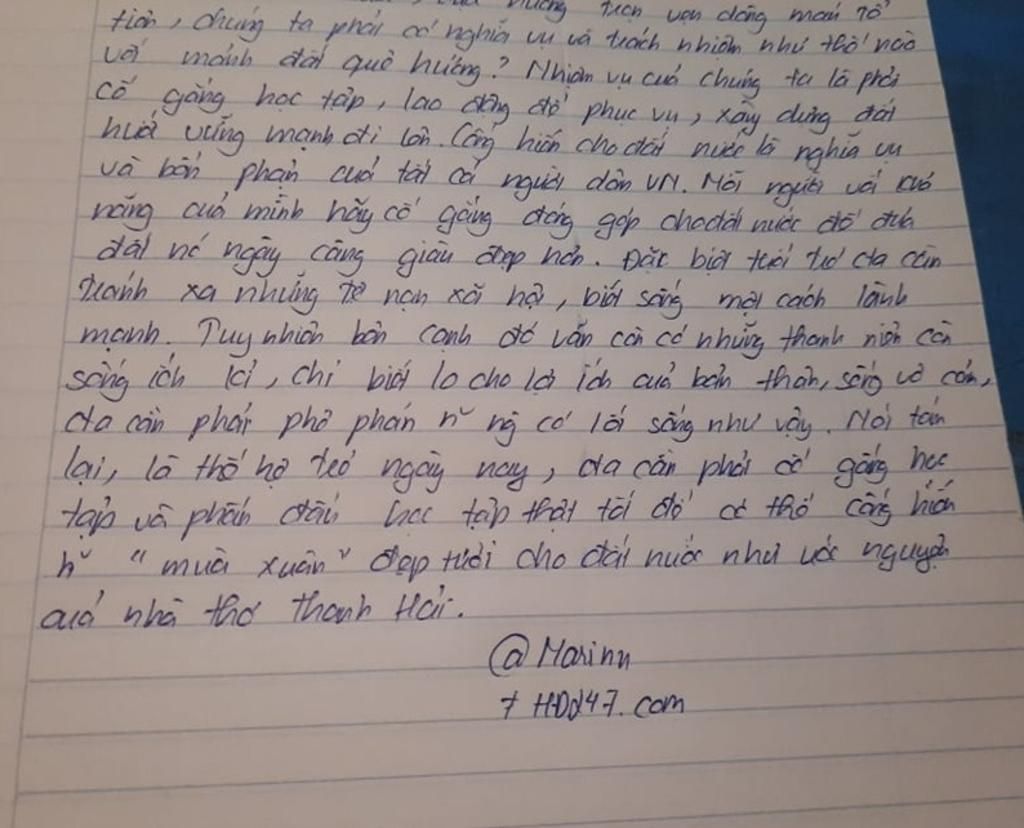 tiên, chúng ta phải có nghĩa vụ và trách nhiệm như thế nào
với mảnh đất quê hương? Nhiệm vụ của chúng ta là phải
cố gắng học tập, lao động để phục vụ, xây dựng đất
nước vững mạnh đi lên. Cống hiến cho đất nước là nghĩa vụ
và bổn phận của tất cả người dân VN. Mỗi người với khả
năng của mình hãy cố gắng đóng góp cho đất nước để đưa
đất nc ngày càng giàu đẹp hơn. Đặc biệt tuổi trẻ cta cần
tránh xa những tệ nạn xã hội, biết sống một cách lành
mạnh. Tuy nhiên bên cạnh đó vẫn còn có những thanh niên còn
sống ích kỉ, chỉ biết lo cho lợi ích của bản thân, sống vô cảm,
cta cần phải phê phán n~ ng có lối sống như vậy. Nói tóm
lại, là thế hệ trẻ ngày nay, cta cần phải cố gắng học
tập và phấn đấu học tập thật tốt để có thể cống hiến
n~ "mùa xuân" đẹp tươi cho đất nước như ước nguyện
của nhà thơ Thanh Hải.
@Marinu
7 HDd47.com